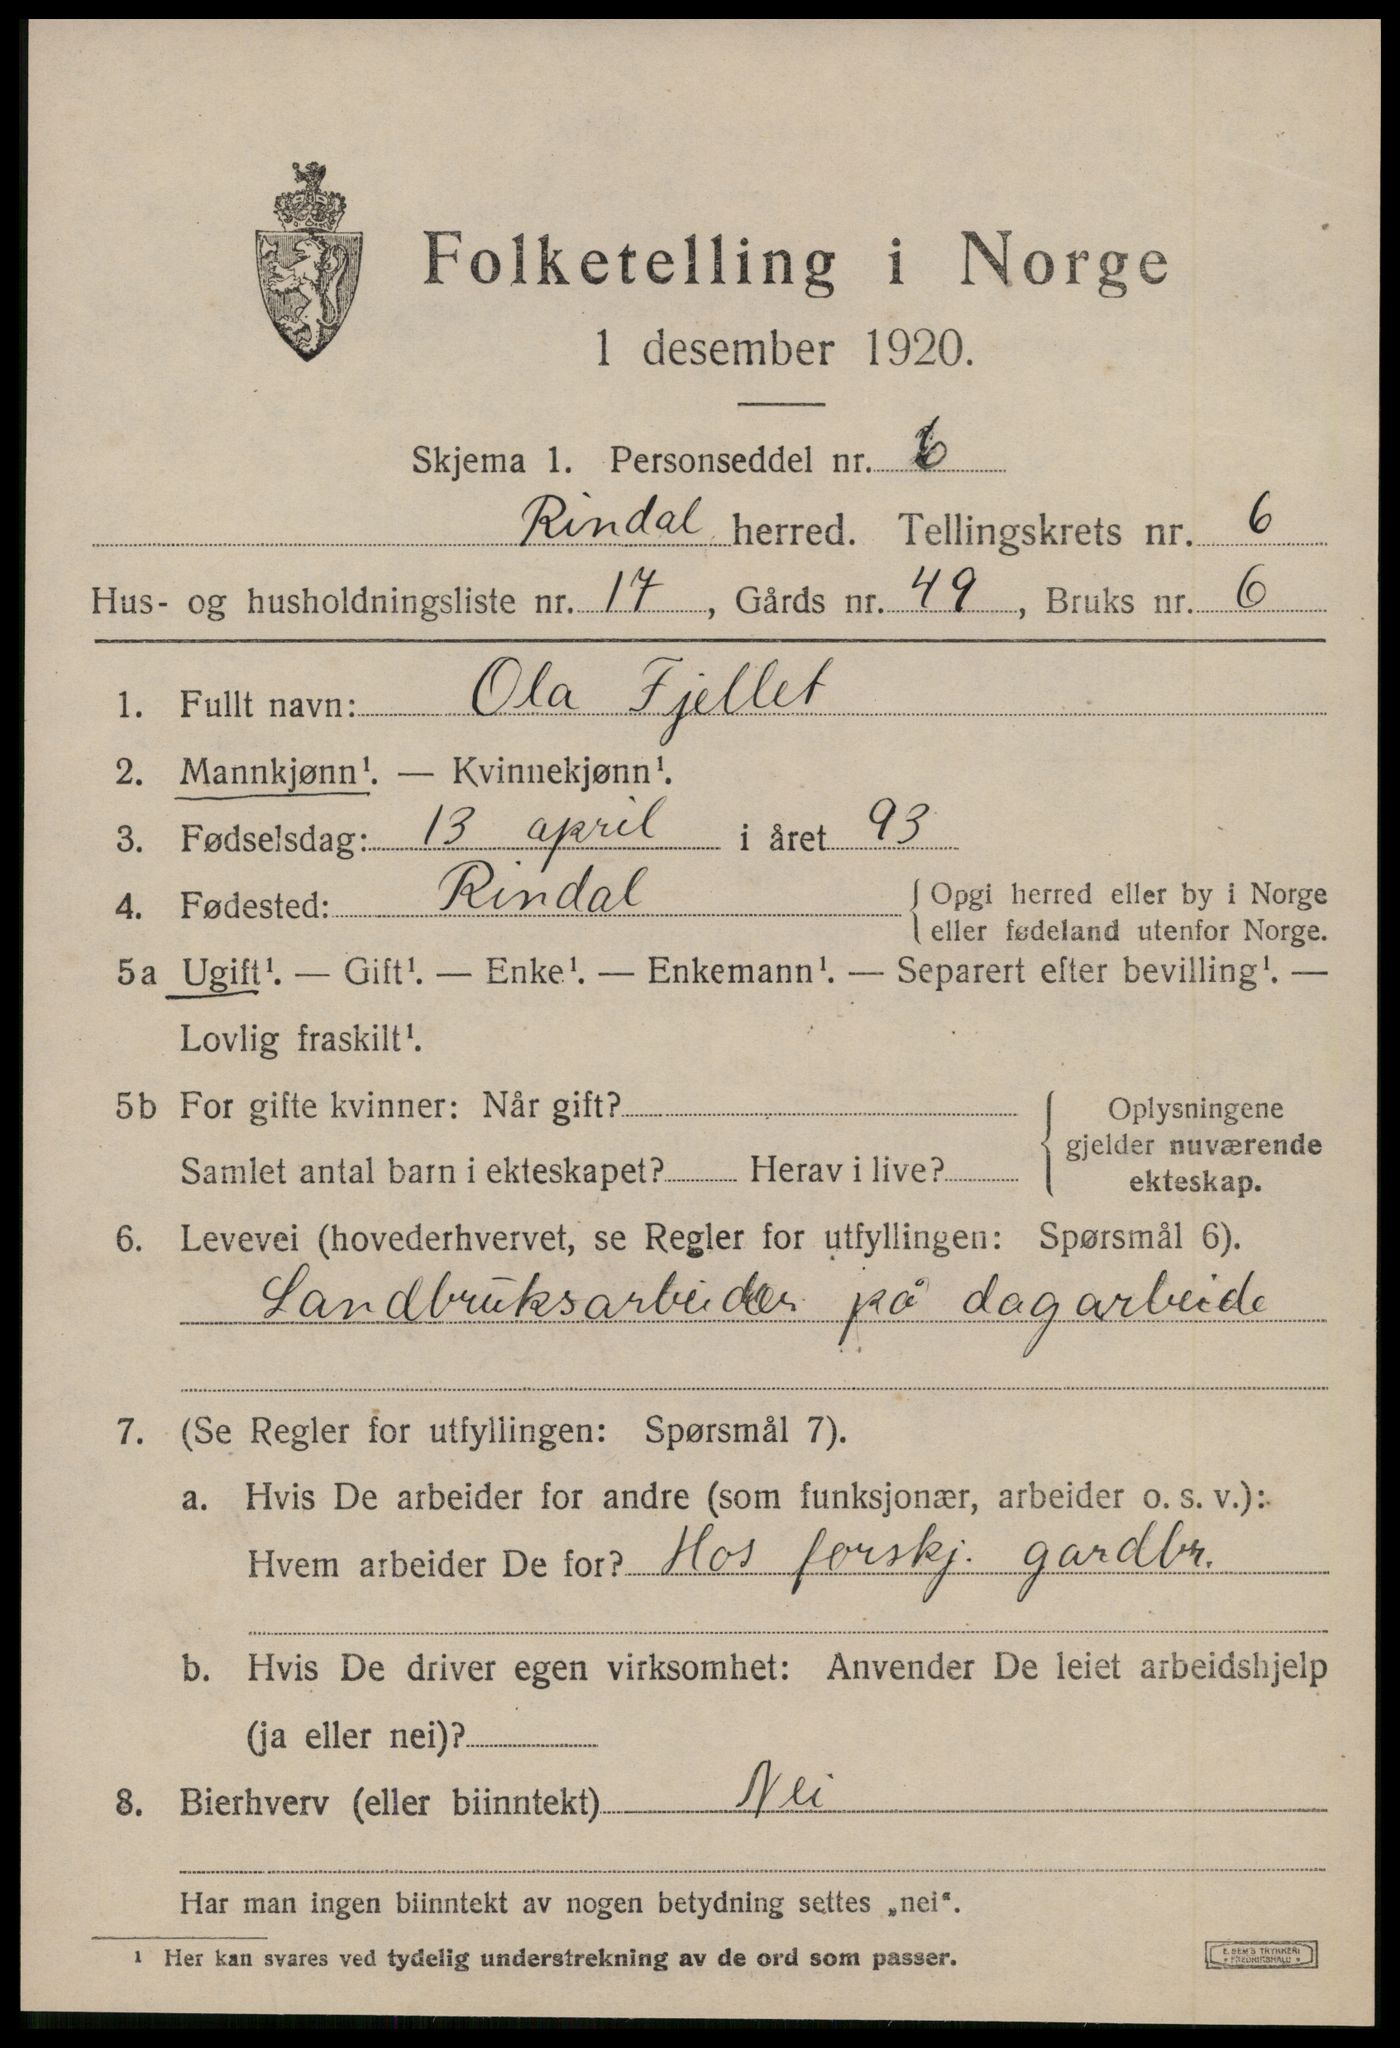 Folketelling i Norge
1 desember 1920.
Skjema 1. Personseddel nr. 6
Rindal herred. Tellingskrets nr. 6
Hus- og husholdningsliste nr. 17, Gårds nr. 49, Bruks nr. 6
1. Fullt navn: Ola Fjellet
2. Mannkjønn¹. — Kvinnekjønn¹.
3. Fødselsdag: 13 april i året 93
4. Fødested: Rindal { Opgi herred eller by i Norge
eller fødeland utenfor Norge.
5a Ugift¹. — Gift¹. — Enke¹. — Enkemann¹. — Separert efter bevilling¹. —
Lovlig fraskilt¹.
5b For gifte kvinner: Når gift?
Samlet antal barn i ekteskapet? Herav i live?
Oplysningene
gjelder nuværende
ekteskap.
6. Levevei (hovederhvervet, se Regler for utfyllingen: Spørsmål 6).
Landbruksarbeider på dagarbeide
7. (Se Regler for utfyllingen: Spørsmål 7).
a. Hvis De arbeider for andre (som funksjonær, arbeider o. s. v.):
Hvem arbeider De for? Hos forskj. gardbr.
b. Hvis De driver egen virksomhet: Anvender De leiet arbeidshjelp
(ja eller nei)?
8. Bierhverv (eller biinntekt) Nei
Har man ingen biinntekt av nogen betydning settes „nei“.
¹ Her kan svares ved tydelig understrekning av de ord som passer.
E. SEM'S TRYKKERI
* FREDRIKSHALD *